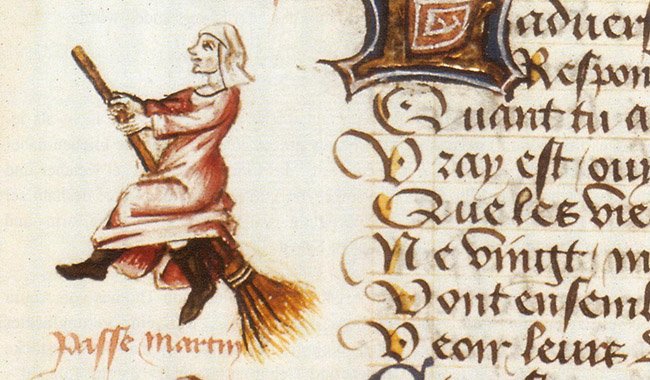 Ladvers
Respon
Quant tu a
Vray est / ouy
Que les vie
Ne vingt / m
Vont ensemb
Veoir leurs
passe martin